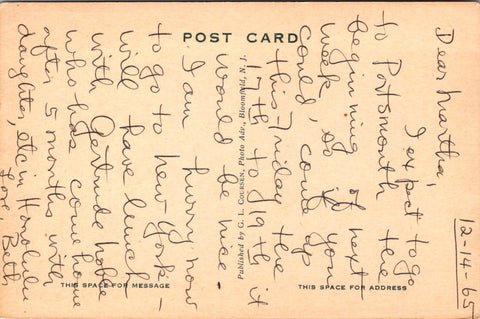 POST CARD
12-14-65
Dear Martha,
I expect to go
to Portsmouth the
beginning of next
week, so if you
could, come up
this Friday the
17th to 19th it
would be nice -
I am hurry now
to go to New York -
will have lunch
with Gertrude Noble
who has come home
after 5 months with
daughter, etc in Honolulu
Love, Beth
Published by G. L. COURSEN, Photo Adv., Bloomfield, N. J.
THIS SPACE FOR MESSAGE
THIS SPACE FOR ADDRESS